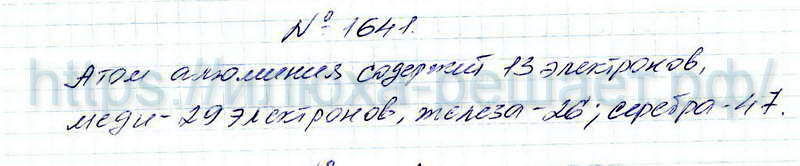 № 1641.
Атом алюминия содержит 13 электронов,
меди - 29 электронов, железа - 26; серебра - 47.